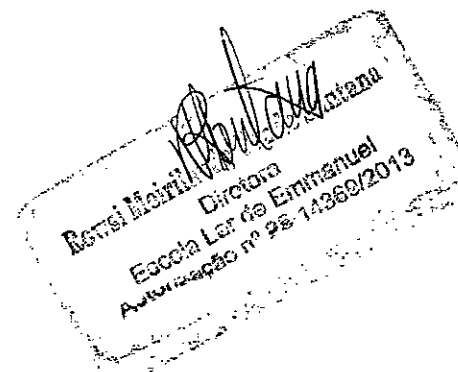 Santana
Diretora
Escola Lar de Emmanuel
Autorização nº 98 14360/2013